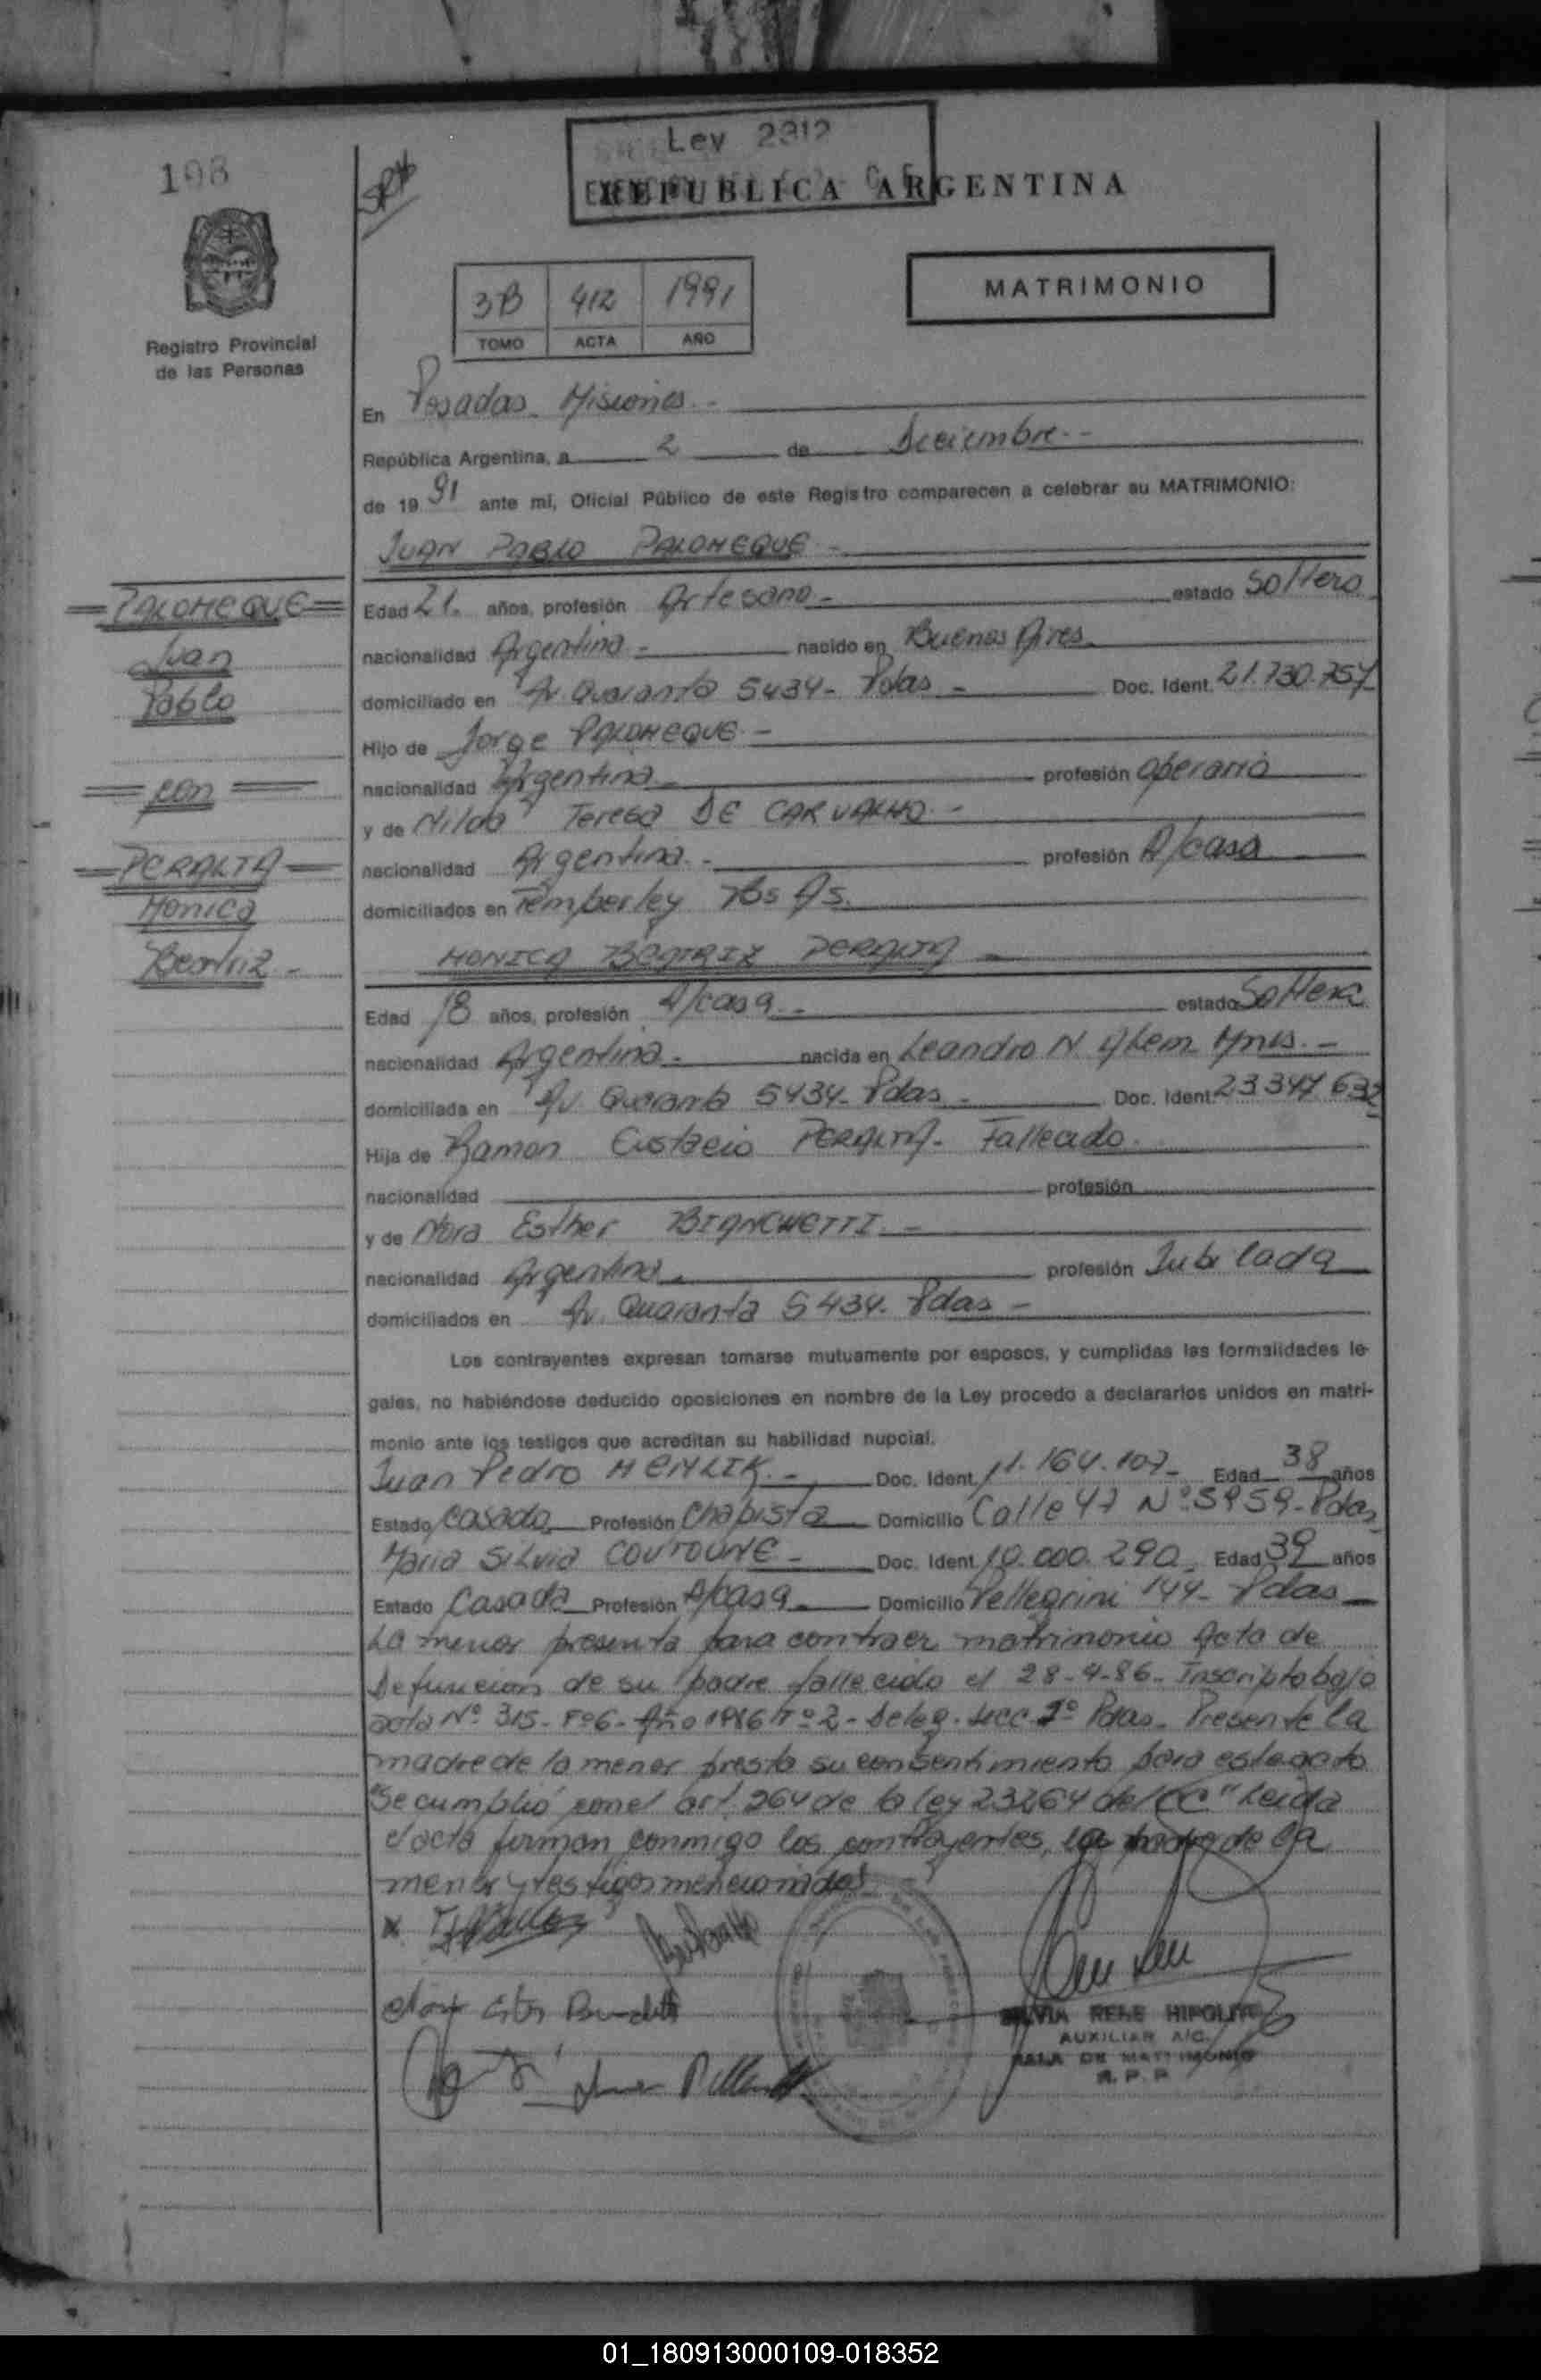 Ley 2312
198
REPUBLICA ARGENTINA
3B 412 1991
TOMO ACTA AÑO
MATRIMONIO
Registro Provincial
de las Personas
En Posadas Misiones.-
República Argentina, a 2 de Diciembre.-
de 19 91 ante mí, Oficial Público de este Registro comparecen a celebrar su MATRIMONIO:
JUAN PABLO PALOMEQUE.-
PALOMEQUE
Juan
Pablo
con
PERALTA
Monica
Beatriz.-
Edad 21. años, profesión Artesano.- estado Soltero
nacionalidad Argentina.- nacido en Buenos Aires
domiciliado en Av Quaranta 5434- Pdas - Doc. Ident. 21.730.757
Hijo de Jorge PALOMEQUE.-
nacionalidad Argentina profesión operario
y de Nilda Teresa DE CARVALHO.-
nacionalidad Argentina.- profesión A/casa
domiciliados en Temperley Bs As.
MONICA BEATRIZ PERALTA
Edad 18 años, profesión A/casa.- estado Soltera
nacionalidad Argentina.- nacida en Leandro N. Alem Mnes.-
domiciliada en Av. Quaranta 5434- Pdas - Doc. Ident. 23347.632
Hija de Ramon Eustacio PERALTA- Fallecido.
nacionalidad profesión
y de Nora Esther BIANCHETTI.-
nacionalidad Argentina profesión Jubilada
domiciliados en Av. Quaranta 5434. Pdas -
Los contrayentes expresan tomarse mutuamente por esposos, y cumplidas las formalidades le-
gales, no habiéndose deducido oposiciones en nombre de la Ley procedo a declararlos unidos en matri-
monio ante los testigos que acreditan su habilidad nupcial.
Juan Pedro HENLIK.- Doc. Ident. 11.164.107- Edad 38 años
Estado Casado Profesión Chapista Domicilio Calle 47 Nº 5959- Pdas
Maria Silvia COUTOUNE- Doc. Ident. 10.000.290 Edad 39 años
Estado Casada Profesión A/casa Domicilio Pellegrini 144- Pdas
La menor presenta para contraer matrimonio Acta de
Defuncion de su padre fallecido el 28-4-86- Inscripto bajo
acta Nº 315- Fº6- Año 1986 Tº2- Deleg. secc 1º Pdas. Presente la
madre de la menor presta su consentimiento para este acto
"Se cumplió con el art. 264 de la ley 23264 del CC" Leida
el acta firman conmigo los contrayentes, la madre de la
menor y testigos mencionados
SILVIA RENE HIPOLITO
AUXILIAR A/C.
SALA DE MATRIMONIO
R. P. P
01_180913000109-018352